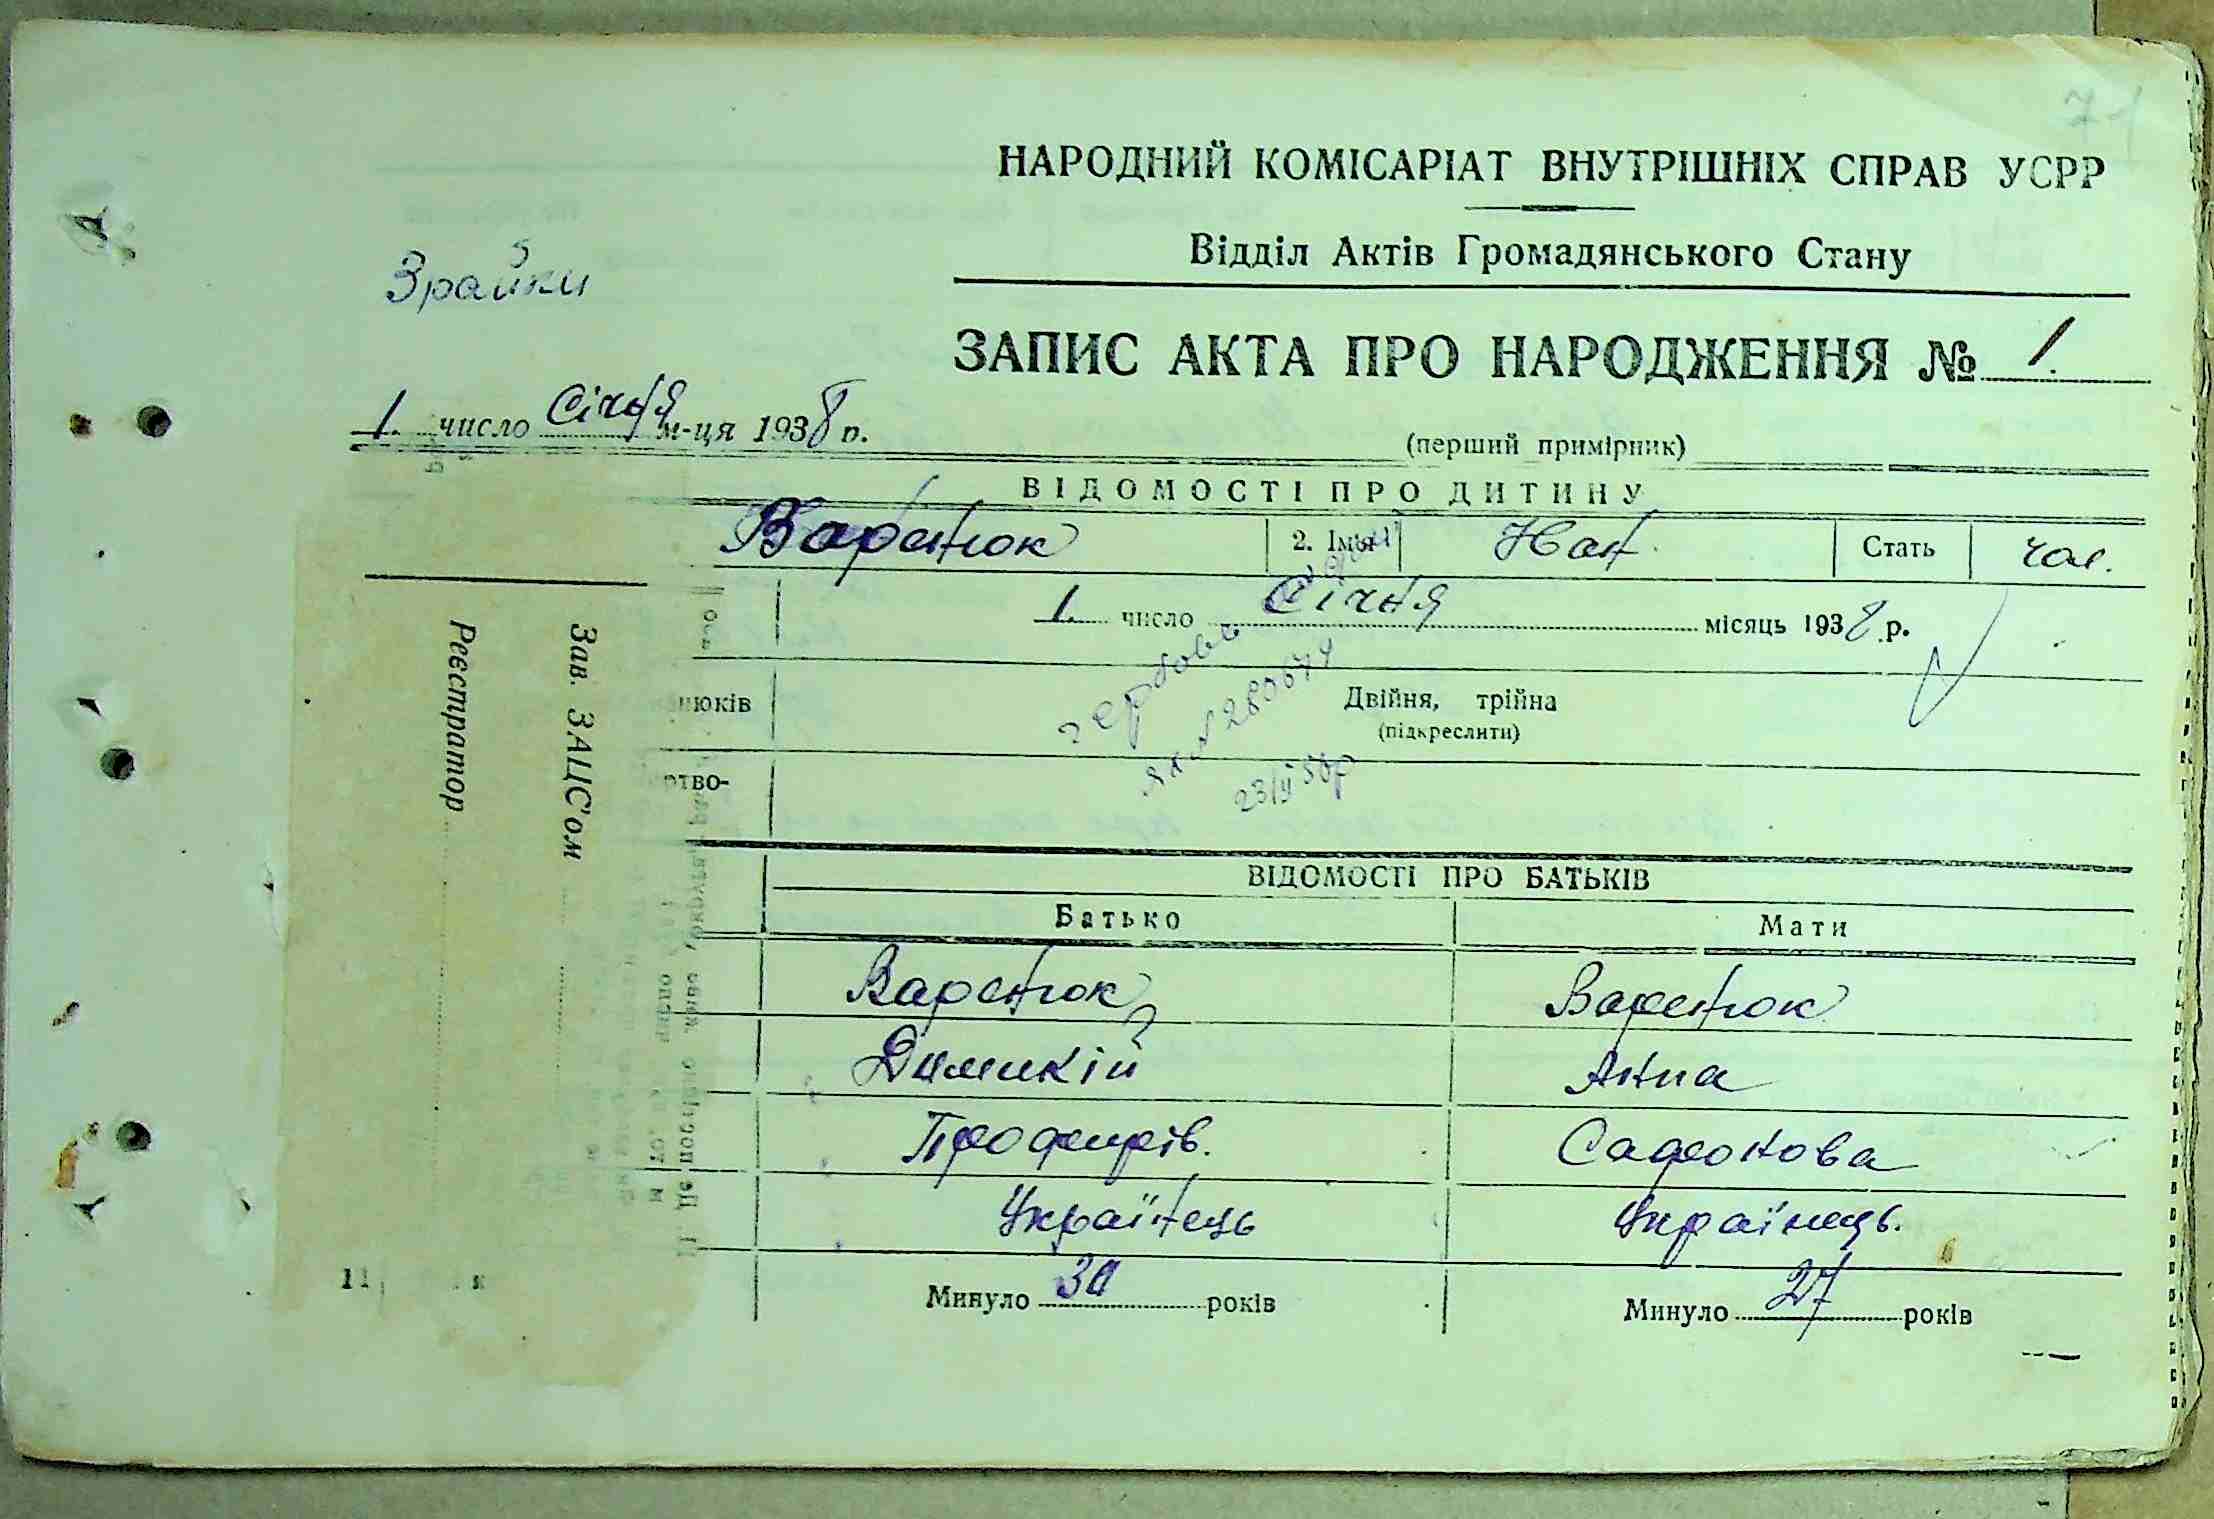 71
НАРОДНИЙ КОМІСАРІАТ ВНУТРІШНІХ СПРАВ УСРР
Відділ Актів Громадянського Стану
Зрайки
ЗАПИС АКТА ПРО НАРОДЖЕННЯ № 1.
1. число Січня м-ця 1938 р.
(перший примірник)
ВІДОМОСТІ ПРО ДИТИНУ
Варенюк 2. Імья Иван Стать чол.
1. число Січня місяць 1938 р.
нюків Двійня, трійна
(підкреслити)
ртво-
ЯХ № 2806
23/II 50р
Зав. ЗАЦС'ом
Реєстратор
ВІДОМОСТІ ПРО БАТЬКІВ
Батько Мати
Варенюк Варенюк
Анна
Профирів. Сафонова
Українець Українець.
Минуло 30 років Минуло 27 років